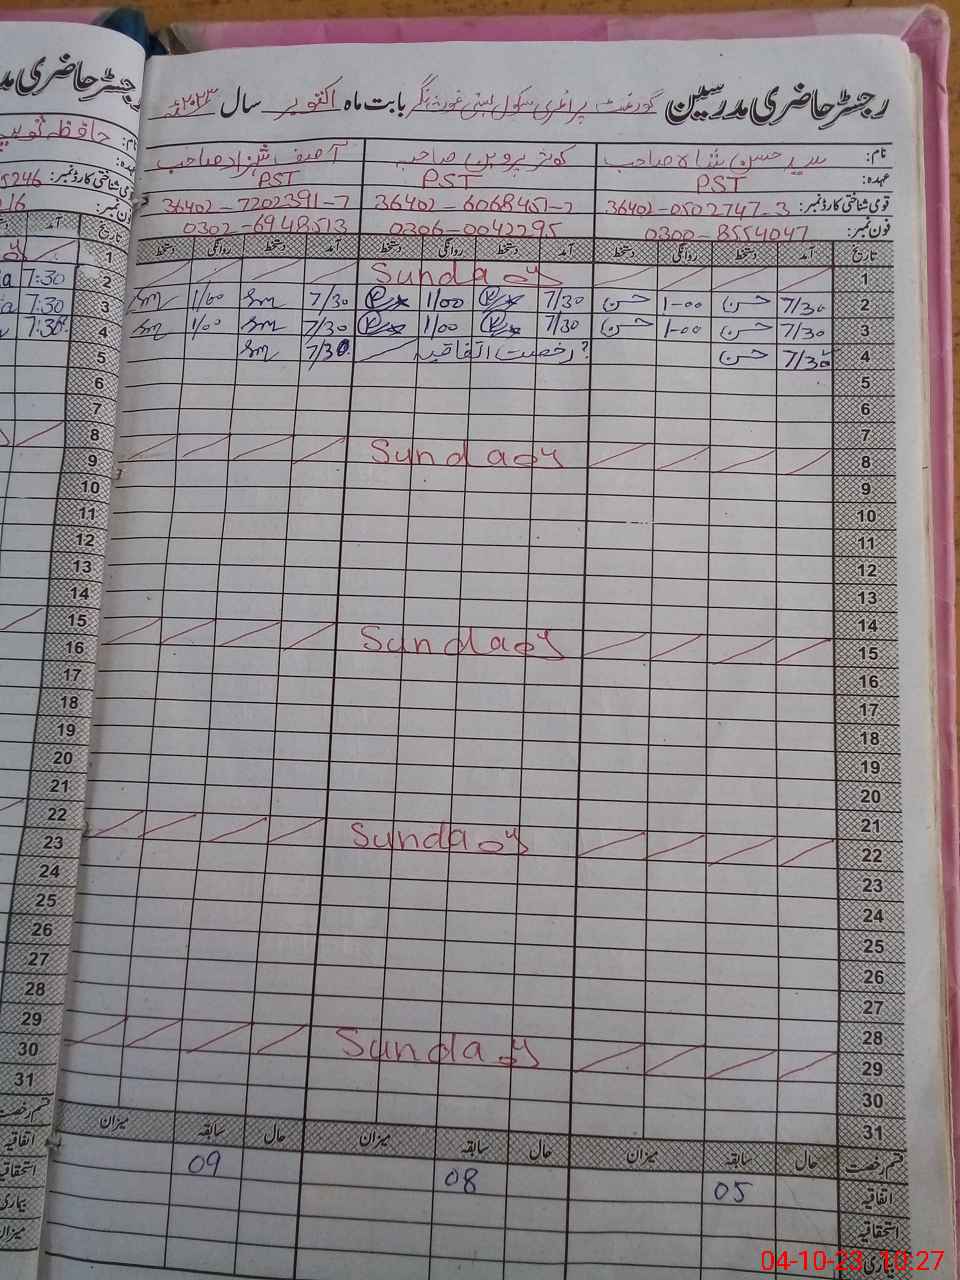 رجسٹر حاضری مدرسین گورنمنٹ پرائمری سکول بستی غوث نگر بابت ماہ اکتوبر سال ۲۰۲۳ء
نام: سید حسن شاہ صاحب کوثر پروین صاحبہ آصف شہزاد صاحب
عہدہ: PST PST PST
قومی شناختی کارڈ نمبر: 36402-0502747-3 36402-6068451-2 36402-7202391-7
فون نمبر: 0300-8554047 0306-0042295 0302-6948513
تاریخ آمد دستخط روانگی دستخط آمد دستخط روانگی دستخط آمد دستخط روانگی دستخط
1 Sunday
2 7/30 حسن 1-00 حسن 7/30 1/00 7/30 1/00
3 7/30 حسن 1-00 حسن 7/30 1/00 7/30 1/00
4 7/30 حسن رخصت اتفاقیہ 7/30
5
6
7
8 Sunday
9
10
11
12
13
14
15 Sunday
16
17
18
19
20
21
22 Sunday
23
24
25
26
27
28
29 Sunday
30
31
قسم رخصت حال سابقہ میزان حال سابقہ میزان حال سابقہ میزان
اتفاقیہ 05 08 09
استحقاقیہ
بیماری
رجسٹر حاضری مد
نام: حافظ
عہدہ:
قومی شناختی کارڈ نمبر: 5246
فون نمبر: 16
تاریخ آمد
1
2 7:30
3 7:30
4 7:30
5
6
7
8
9
10
11
12
13
14
15
16
17
18
19
20
21
22
23
24
25
26
27
28
29
30
31
قسم رخصت
اتفاقیہ
استحقاقیہ
بیماری
میزان
04-10-23 10:27